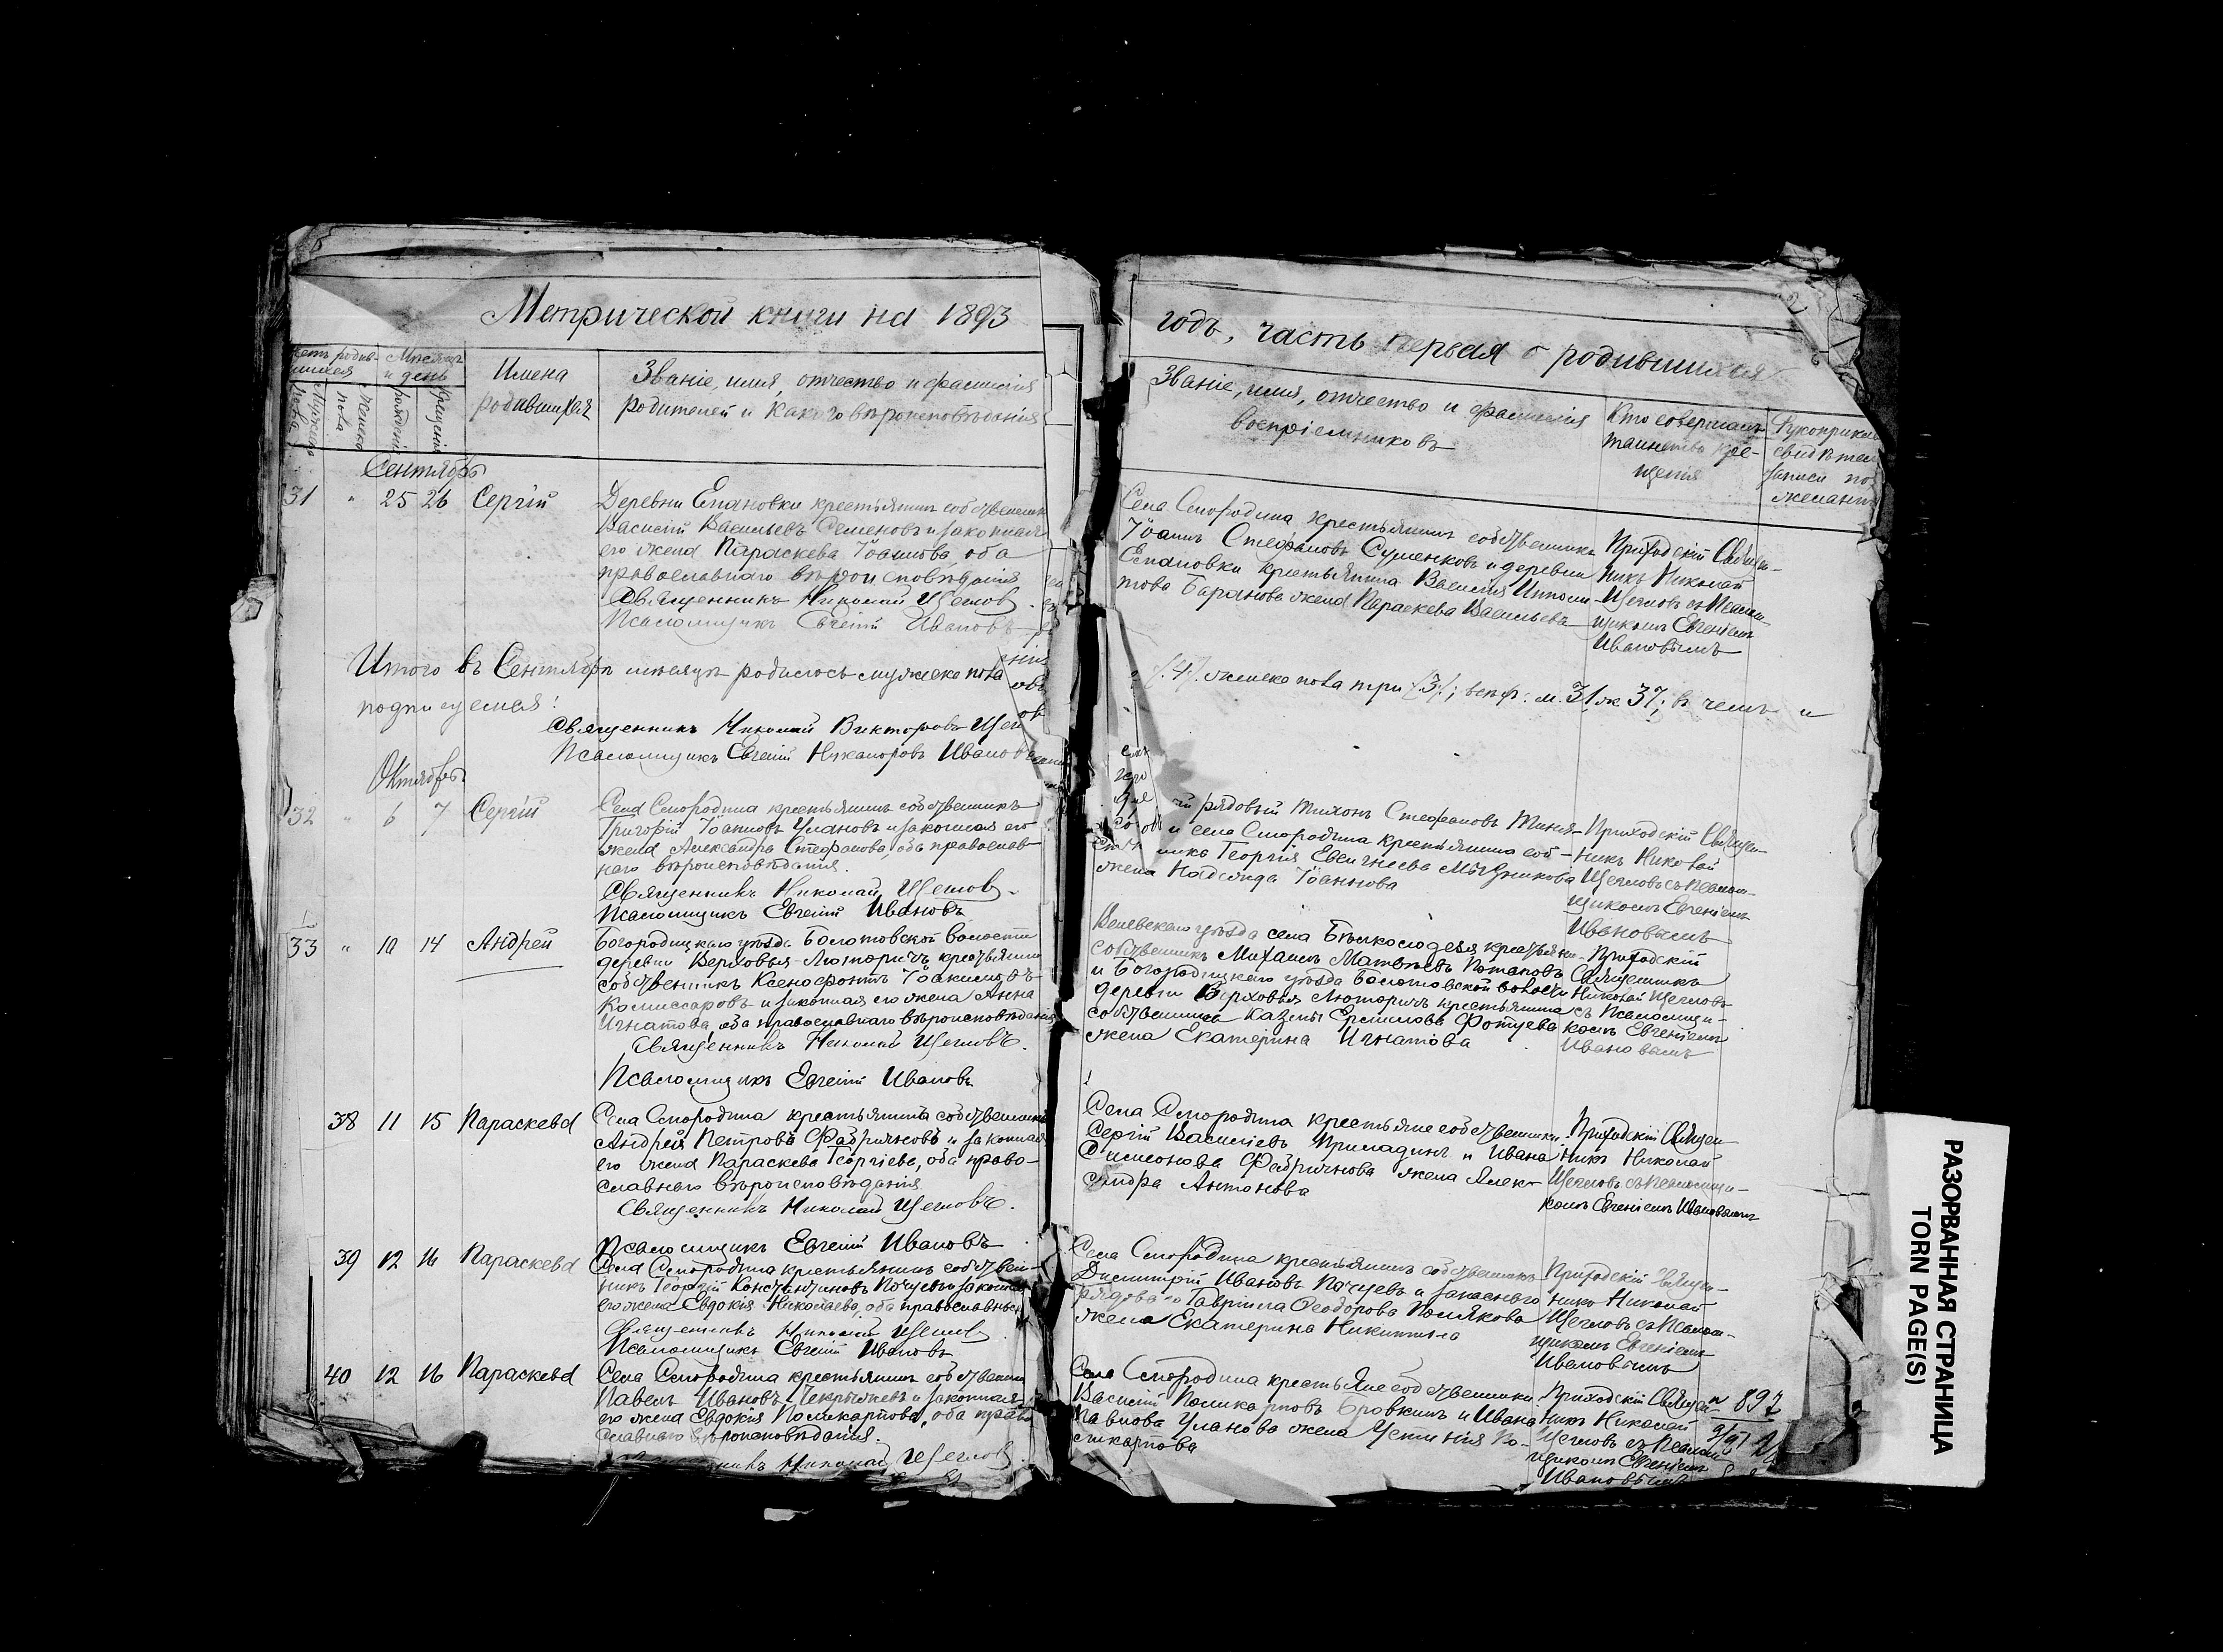 Метрической книги на 1893
годъ, часть первая о родившихся
Мѣсяцъ и день
Имена родившихся
Званіе, имя, отчество и фамилія
родителей и какого вѣроисповѣданія
Званіе, имя, отчество и фамилія
воспріемниковъ
Кто совершалъ
таинство кре-
щенія
Сентябрь
31 " 25 26 Сергій
Деревни Епановки крестьянинъ собственникъ
Василій Васильевъ Семеновъ и законная
его жена Параскева Іоаннова, оба
православнаго вѣроисповѣданія
Священникъ Николай Щегловъ
Псаломщикъ Евгеній Ивановъ
Села Смородина крестьянинъ собственникъ
Іоаннъ Стефановъ Сушенковъ и деревни
Епановки крестьянина Василія
Баранова жена Параскева Васильева
Приходскій Священ-
никъ Николай
Щегловъ съ Псалом-
щикомъ Евгеніемъ
Ивановымъ
Итого въ Сентябрѣ мѣсяцѣ родилось мужеска пола
/4/. женска пола три /3/; м. 31 ж 37; въ чемъ и
подписуемся:
Священникъ Николай Викторовъ Щегловъ
Псаломщикъ Евгеній Никаноровъ Ивановъ
Октябрь
32 " 6 7 Сергій
Села Смородина крестьянинъ собственникъ
Григорій Іоанновъ Улановъ и законная его
жена Александра Стефанова, оба православ-
наго вѣроисповѣданія.
Священникъ Николай Щегловъ
Псаломщикъ Евгеній Ивановъ
рядовый Тихонъ Стефановъ
и села Смородина крестьянина соб-
Георгія
жена Надежда Іоаннова
Приходскій Священ-
никъ Николай
Щегловъ съ Псалом-
щикомъ Евгеніемъ
Ивановымъ
33 " 10 14 Андрей
Богородицкаго уѣзда Болотовской волости
деревни Верховья-Люторичъ крестьянинъ
собственникъ Ксенофонтъ Іоакимовъ
Комиссаровъ и законная его жена Анна
Игнатова, оба православнаго вѣроисповѣданія
Священникъ Николай Щегловъ.
Псаломщикъ Евгеній Ивановъ
уѣзда села Бѣлколодезя крестьянинъ
собственникъ Михаилъ Матвѣевъ Потаповъ
и Богородицкаго уѣзда Болотовской волости
деревни Верховья Люторичъ крестьянина
собственника Казьмы Ермилова
жена Екатерина Игнатова
Приходскій
Священникъ
Николай Щегловъ
съ Псаломщи-
комъ Евгеніемъ
Ивановымъ
38 11 15 Параскева
Села Смородина крестьянина собственника
Андрея Петрова Фабричнова и законная
его жена Параскева Георгіева, оба право-
славнаго вѣроисповѣданія
Священникъ Николай Щегловъ.
Псаломщикъ Евгеній Ивановъ
Села Смородина крестьяне собственники:
Сергій Василіевъ Приладинъ и Ивана
Симеонова Фабричнова жена Алек-
сандра Антонова
Приходскій Священ-
никъ Николай
Щегловъ съ Псаломщи-
комъ Евгеніемъ Ивановымъ
39 12 16 Параскева
Села Смородина крестьянинъ собствен-
никъ Георгій Константиновъ Почуевъ и законная
его жена Евдокія Николаева, оба православныхъ
Священникъ Николай Щегловъ
Псаломщикъ Евгеній Ивановъ
Села Смородина крестьянинъ собственникъ
Димитрій Ивановъ Почуевъ и запаснаго
рядоваго Гавріила Ѳеодорова Полякова
жена Екатерина Никитина
Приходскій Священ-
никъ Николай
Щегловъ съ Псалом-
щикомъ Евгеніемъ
Ивановымъ
40 12 16 Параскева
Села Смородина крестьянинъ собственникъ
Павелъ Ивановъ и законная
его жена Евдокія Поликарпова, оба право
славнаго вѣроисповѣданія.
Николай Щегловъ
Села Смородина крестьяне собственники:
Василій Поликарповъ Бровкинъ и Ивана
Павлова Уланова жена По-
ликарпова
Приходскій Священ-
никъ Николай
Щегловъ съ Псалом
щикомъ Евгеніемъ
Ивановымъ
РАЗОРВАННАЯ СТРАНИЦА
TORN PAGE(S)